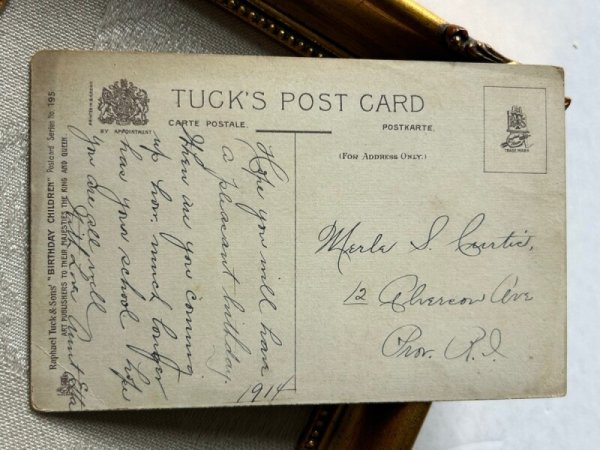 TUCK'S POST CARD
CARTE POSTALE.
POSTKARTE.
BY APPOINTMENT
(FOR ADDRESS ONLY.)
TRADE MARK
Hope you will have
a pleasant birthday.
When are you coming
up how much longer
has your school hope
you are all well
with Love Aunt Etta
1914
Merle S. Curtis,
12 Alverson Ave
Prov. R.I
Raphael Tuck & Sons' "BIRTHDAY CHILDREN" Postcard Series No 195
ART PUBLISHERS TO THEIR MAJESTIES THE KING AND QUEEN.